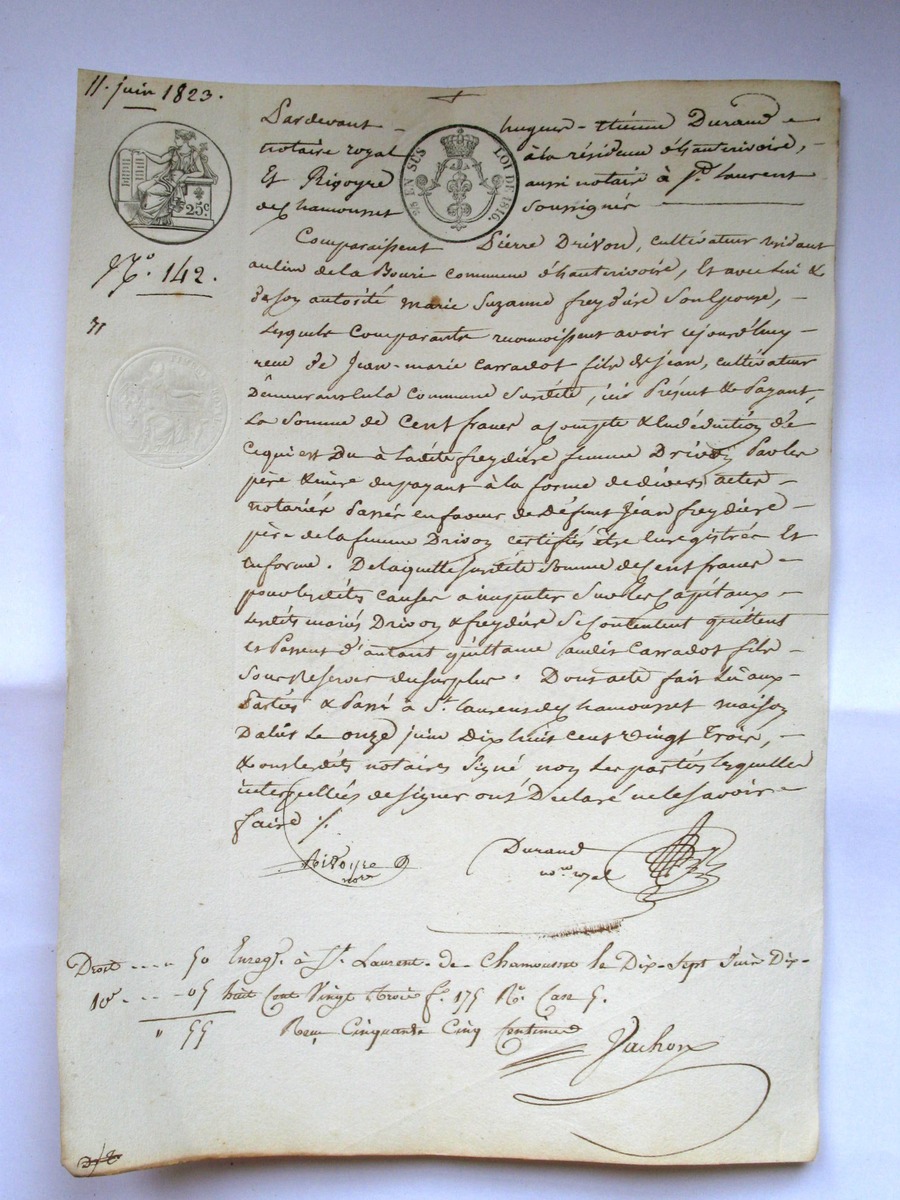 11. juin 1823.
Pardevant hugues-étienne Durand
notaire royal à la résidence d'hauterivoire,
Et Rigoyre aussi notaire à St Laurent
de Chamousset Soussignés
25c
25 EN SUS LOI DE 1816.
Comparaissent Pierre Drivon, cultivateur residant
au lieu de la Bourie commune d'hauterivoire, Et avec lui &
de son autorité marie Suzanne freydière Son Epouse,
N.o 142.
Lesquels Comparants reconnoissent avoir cejourd'huy
reçu de Jean-marie Carradot fils de jean, cultivateur
Demeurant en la Commune Susdite, ici Présent & Payant,
La Somme de Cent francs a compte & en déduction de
ce qui est Du à Ladite freydière femme Drivon Par les
père & mère du payant à la forme de divers actes
notariés Passés en faveur de Défunt Jean freydière
père de la femme Drivon certifiés être Enregistrés Et
en forme. De laquelle Susdite Somme de Cent francs
pour les dites causes a imputer Sur les Capitaux
Lesdits mariés Drivon & freydière Se contentent quittent
et Passent d'autant quittance audit Carradot fils
Sous Réserves du Surplus. Dont acte fait Lû aux
Parties & Passé à St Laurent de Chamousset maison
Dalus Le onze juin Dix huit cent vingt Trois,
& ont lesdits notaires Signé non Les parties lesquelles
interpellées de signer ont Déclaré ne le Savoir
faire ./.
Rigoyre
nore
Durand
nore royal
Droit .... 50 Enregé à St Laurent-de-Chamousset le Dix-Sept Juin Dix-
10e .... 05 huit Cent Vingt trois f.o 175 Ro. Case 5.
" 55 Reçu Cinquante Cinq Centimes
Vachon